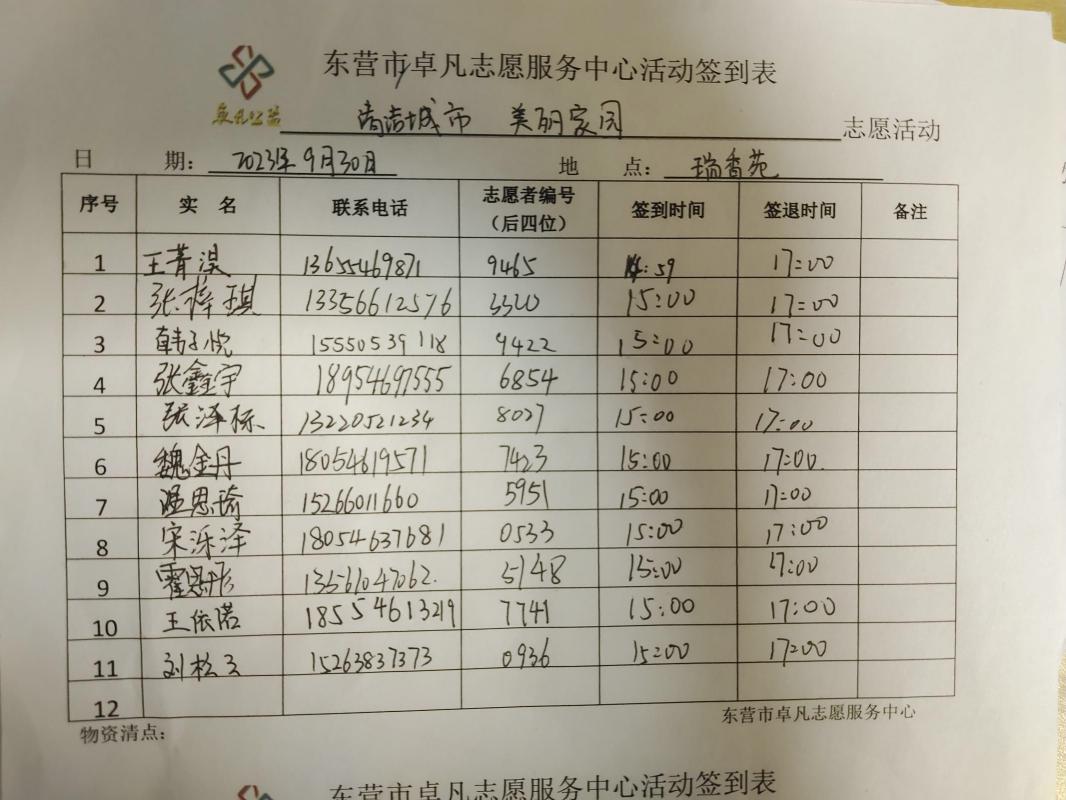 东营市卓凡志愿服务中心活动签到表
卓凡公益 清洁城市 美丽家园 志愿活动
日 期: 2023年9月30日 地 点: 瑞香苑
序号 实 名 联系电话 志愿者编号(后四位) 签到时间 签退时间 备注
1 王菁淏 13655469871 9465 14:59 17:00
2 张梓琪 13356612576 3320 15:00 17:00
3 韩子悦 15550539118 9422 15:00 17:00
4 张鑫宇 18954697555 6854 15:00 17:00
5 张泽栋 13220521234 8027 15:00 17:00
6 魏金丹 18054619571 7423 15:00 17:00.
7 温思瑜 15266011660 5951 15:00 17:00
8 宋泺泽 18054637681 0533 15:00 17:00
9 霍 13561047062. 5148 15:00 17:00
10 王依诺 18554613219 7741 15:00 17:00
11 刘松 15263837373 0936 15:00 17:00
12
物资清点: 东营市卓凡志愿服务中心
东营市卓凡志愿服务中心活动签到表